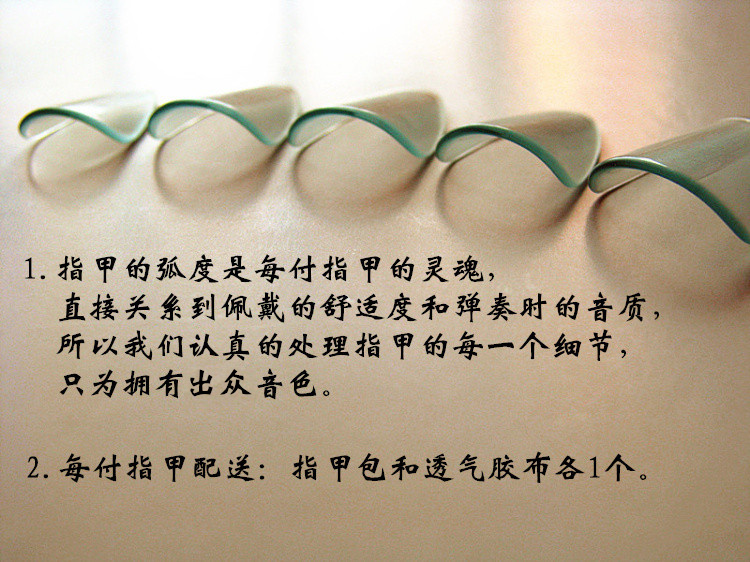 1. 指甲的弧度是每付指甲的灵魂，
直接关系到佩戴的舒适度和弹奏时的音质，
所以我们认真的处理指甲的每一个细节，
只为拥有出众音色。
2. 每付指甲配送：指甲包和透气胶布各1个。